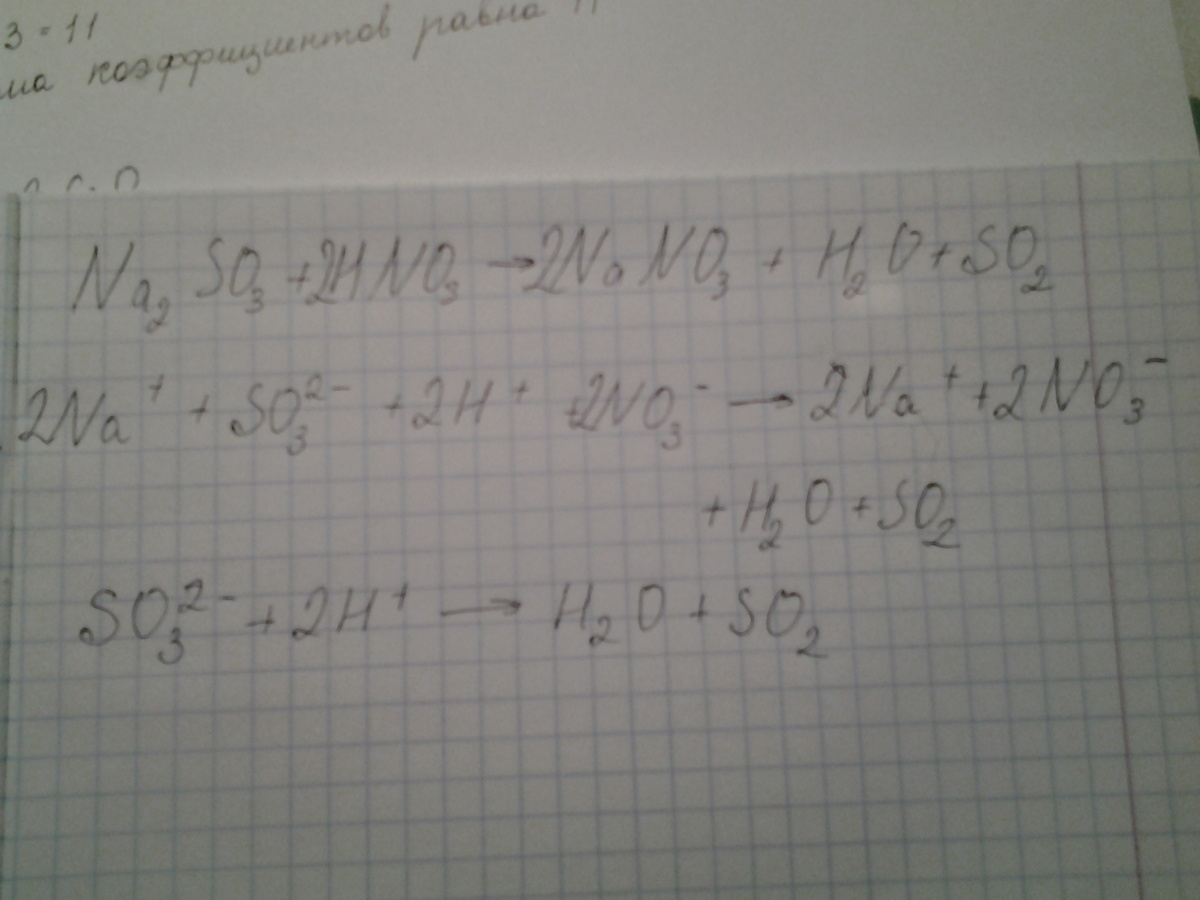 3 = 11
ма коэффициентов равна 11
Na₂SO₃ + 2HNO₃ → 2NaNO₃ + H₂O + SO₂
2Na⁺ + SO₃²⁻ + 2H⁺ + 2NO₃⁻ → 2Na⁺ + 2NO₃⁻
+ H₂O + SO₂
SO₃²⁻ + 2H⁺ → H₂O + SO₂